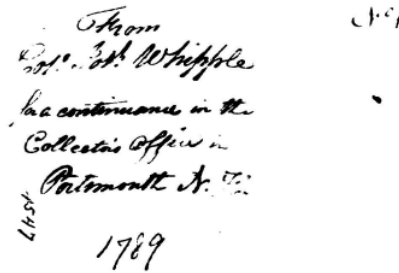 From
Whipple
for a continuance in the
Collectors Office in
Portsmouth N. H.
1789